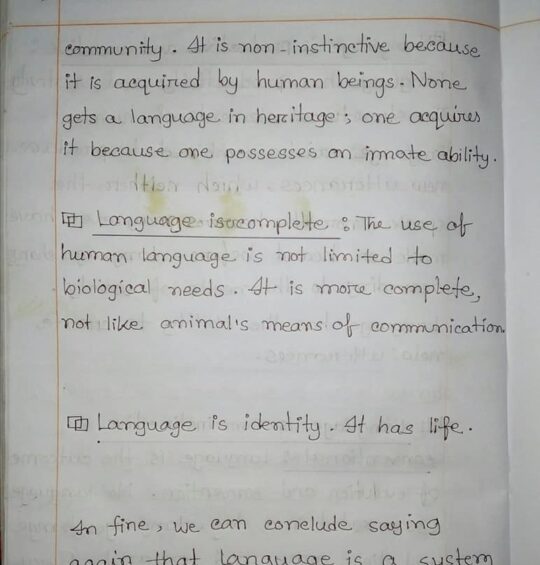 community. It is non-instinctive because
it is acquired by human beings. None
gets a language in heritage; one acquires
it because one possesses an innate ability.
Language is complete: The use of
human language is not limited to
biological needs. It is more complete,
not like animal's means of communication.
Language is identity. It has life.
In fine, we can conclude saying
again that language is a system